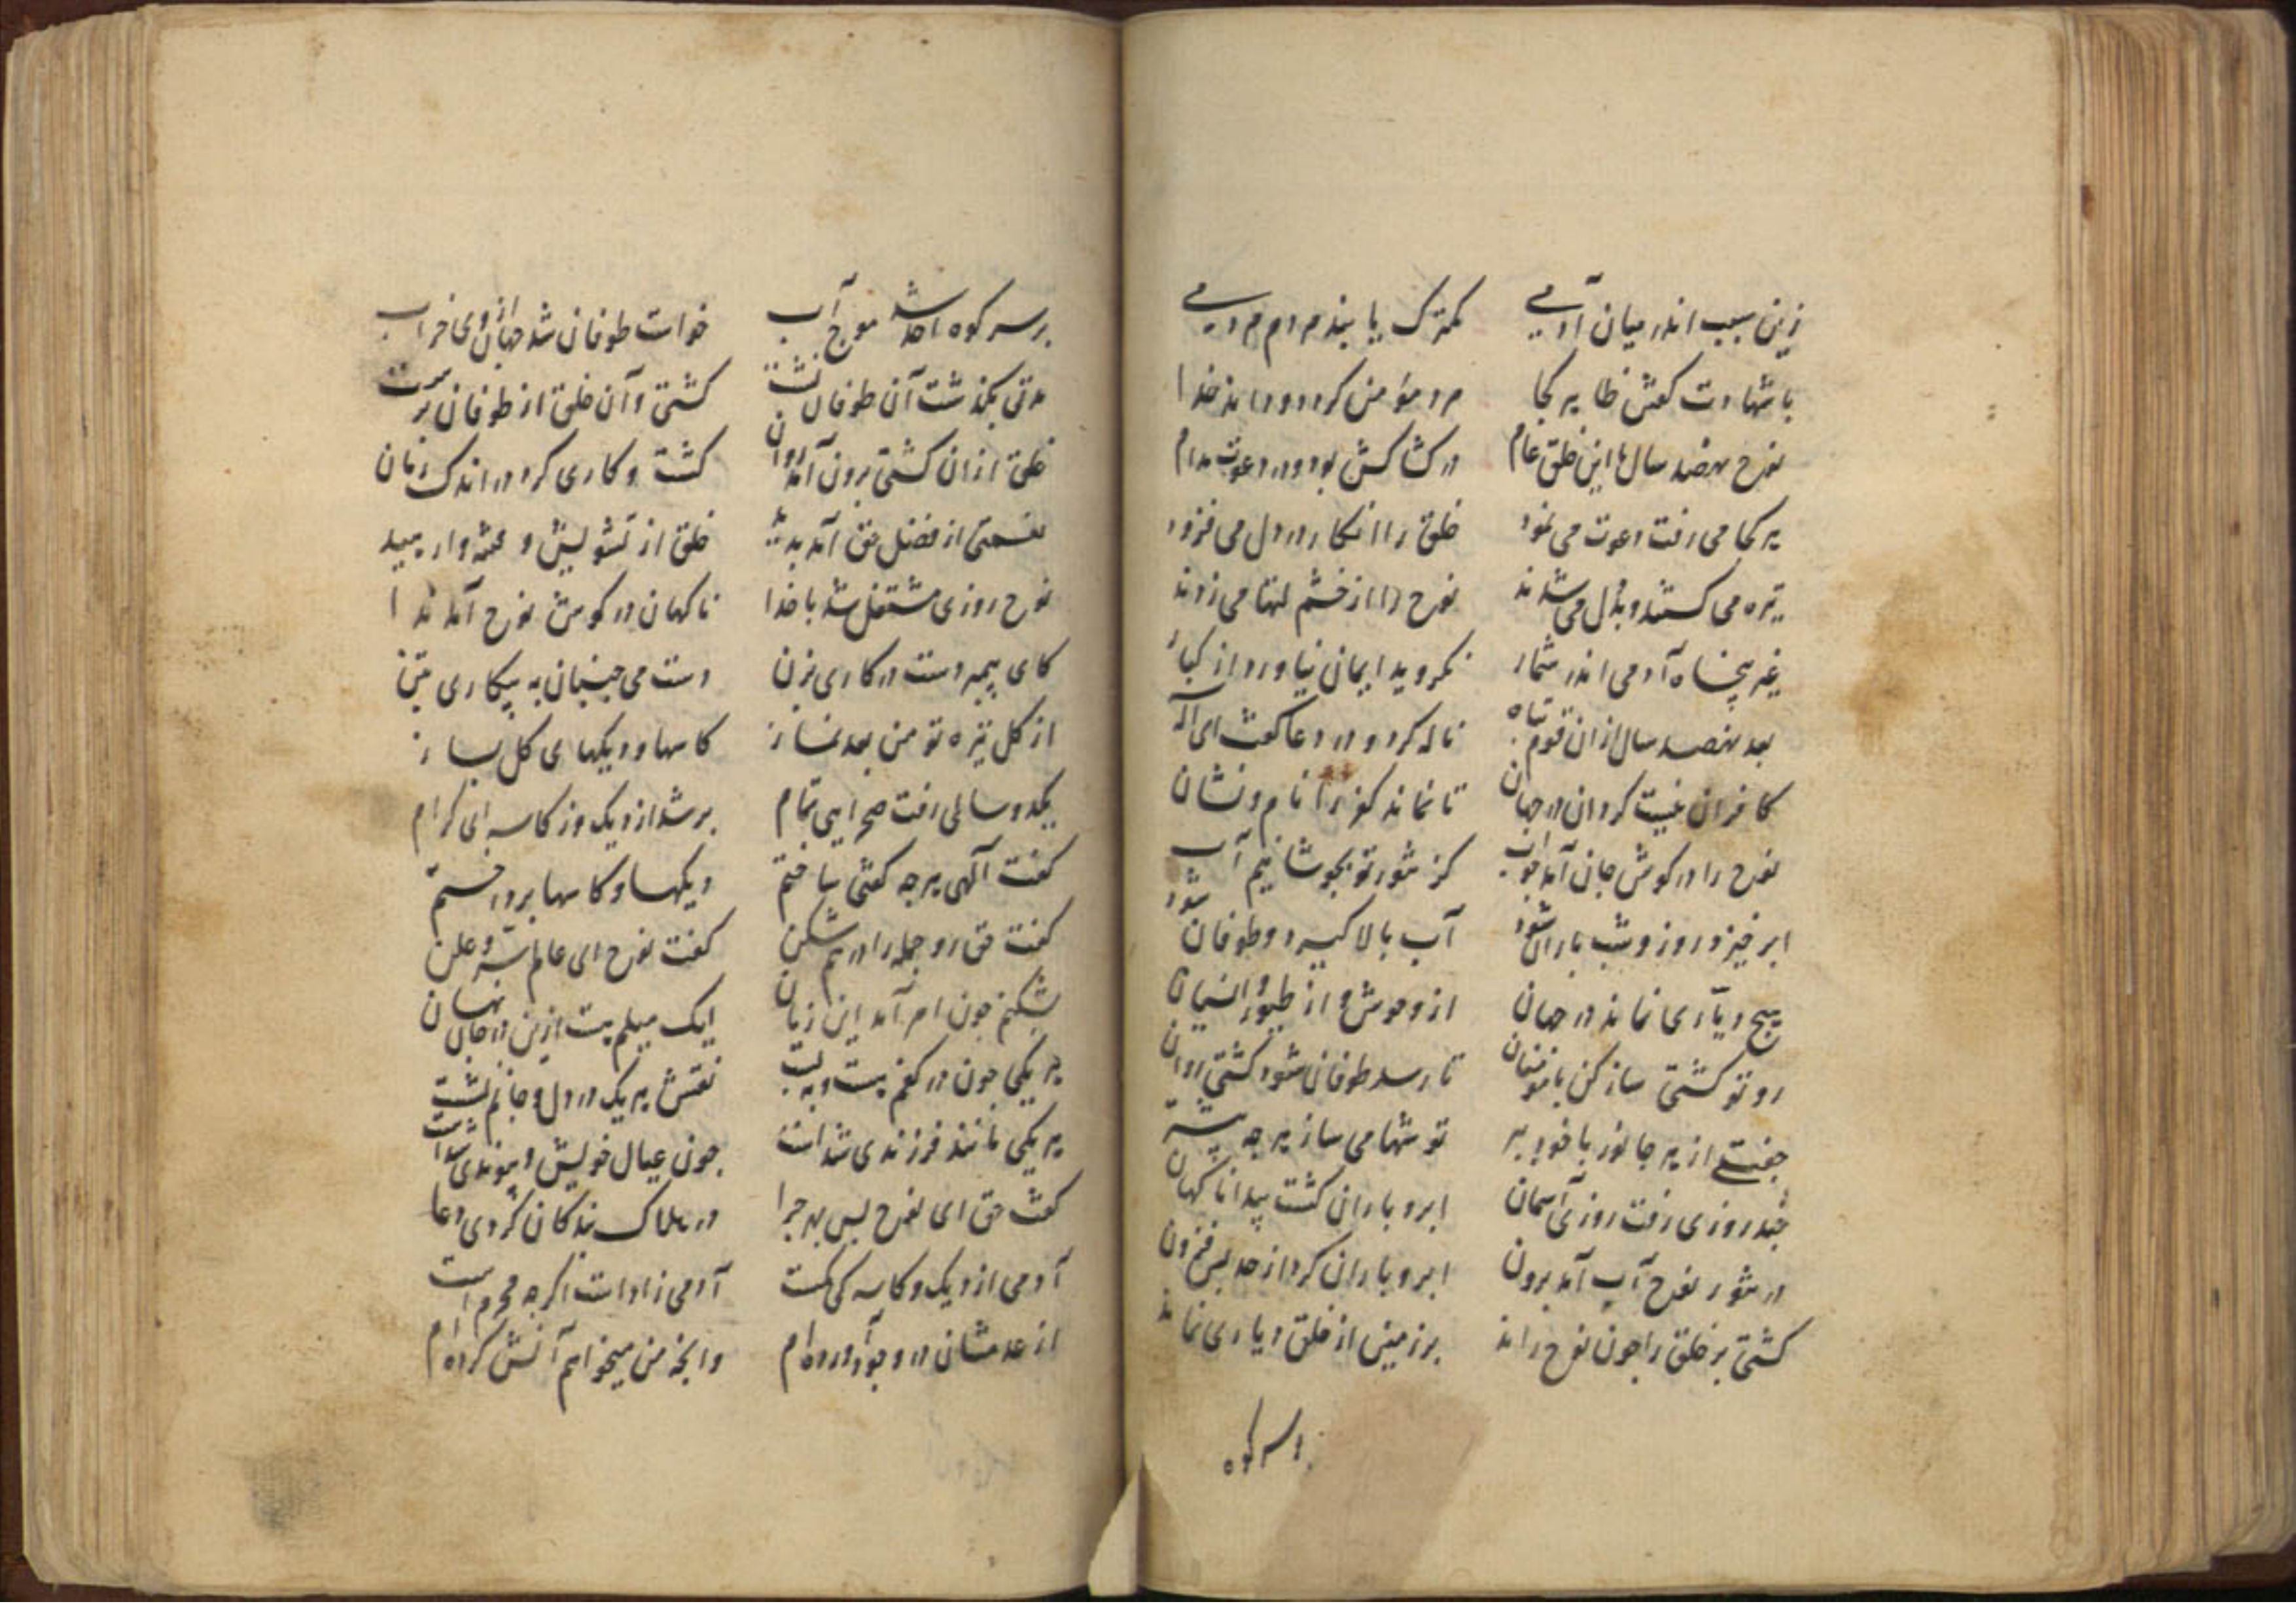 زین سبب اندر میان آدمی کمترک یابند مردم مردمی
با شهادت گفتش ظاهر کجا مرد مؤمن کرد و داند خدا
نوح نهصد سال با این خلق عام در کشاکش بود و در دعوت مدام
هر کجا می رفت دعوت می نمود خلق را انکار در دل می فزود
تیره می کشتند و بدل می شدند نوح را از خشم لتها می زدند
غیر پنجاه آدمی اندر شمار نکروید ایمان نیاورد از کبار
بعد نهصد سال ازان قوم تباه ناله کرد و در دعا گفت ای اله
کافران نیست کردان در جهان تا نماند کفر را نام و نشان
نوح را در کوش جان آمد جواب کز شور تو بجوشانیم آب
ابر خیزد روز و شب باران شود آب بالا کیرد و طوفان شود
هیچ دیاری نماند در جهان از وحوش و از طیور و انسیان
رو تو کشتی ساز کن با مؤمنان تا رسد طوفان شود کشتی روان
جفتی از هر جانور با خود ببر توشها می ساز هر چه بیشتر
چند روزی رفت روزی آسمان ابر و باران کشت پیدا ناکهان
در شور نوح آب آمد برون ابر و باران کرد از حد بس فزون
کشتی بر خلق را چون نوح راند بر زمین از خلق دیاری نماند
بر سر کوه
بر سر کوه احد شد موج آب خواست طوفان شد جهان از وی خراب
مدتی بگذشت آن طوفان نشست کشتی و آن خلق از طوفان برست
خلق ازان کشتی برون آمد روان کشت و کاری کرد در اندک زمان
نعمتی از فضل حق آمد پدید خلق از تشویش و غصه وارهید
نوح روزی مشتغل شد با خدا ناکهان در کوش نوح آمد ندا
کای پیمبر دست در کاری بزن دست می جنبان به بیکاری متن
از کل تیره تو من بعد نماز کاسها و دیکهای کل بساز
یکدو سالی رفت صحرایی تمام پر شد از دیک و ز کاسه ای کرام
گفت الهی هر چه گفتی ساختم دیکها و کاسها پرداختم
گفت حق رو جمله را در هم شکن گفت نوح ای عالم سر و علن
بشکنم چون امر آمد این زمان لیک میلم هست ازین در جان نهان
هر یکی چون در کفم پست و بلند نقش هر یک در دل و جانم نشست
هر یکی مانند فرزندی شدست چون عیال خویش و پیوندی شدست
گفت حق ای نوح پس بهر چرا در هلاک بندکان کردی دعا
آدمی از دیک و کاسه کی کمست آدمی زادست اکر چه مجرم است
از عدمشان در وجود آورده ام وانچه من میخواهم آنش کرده ام